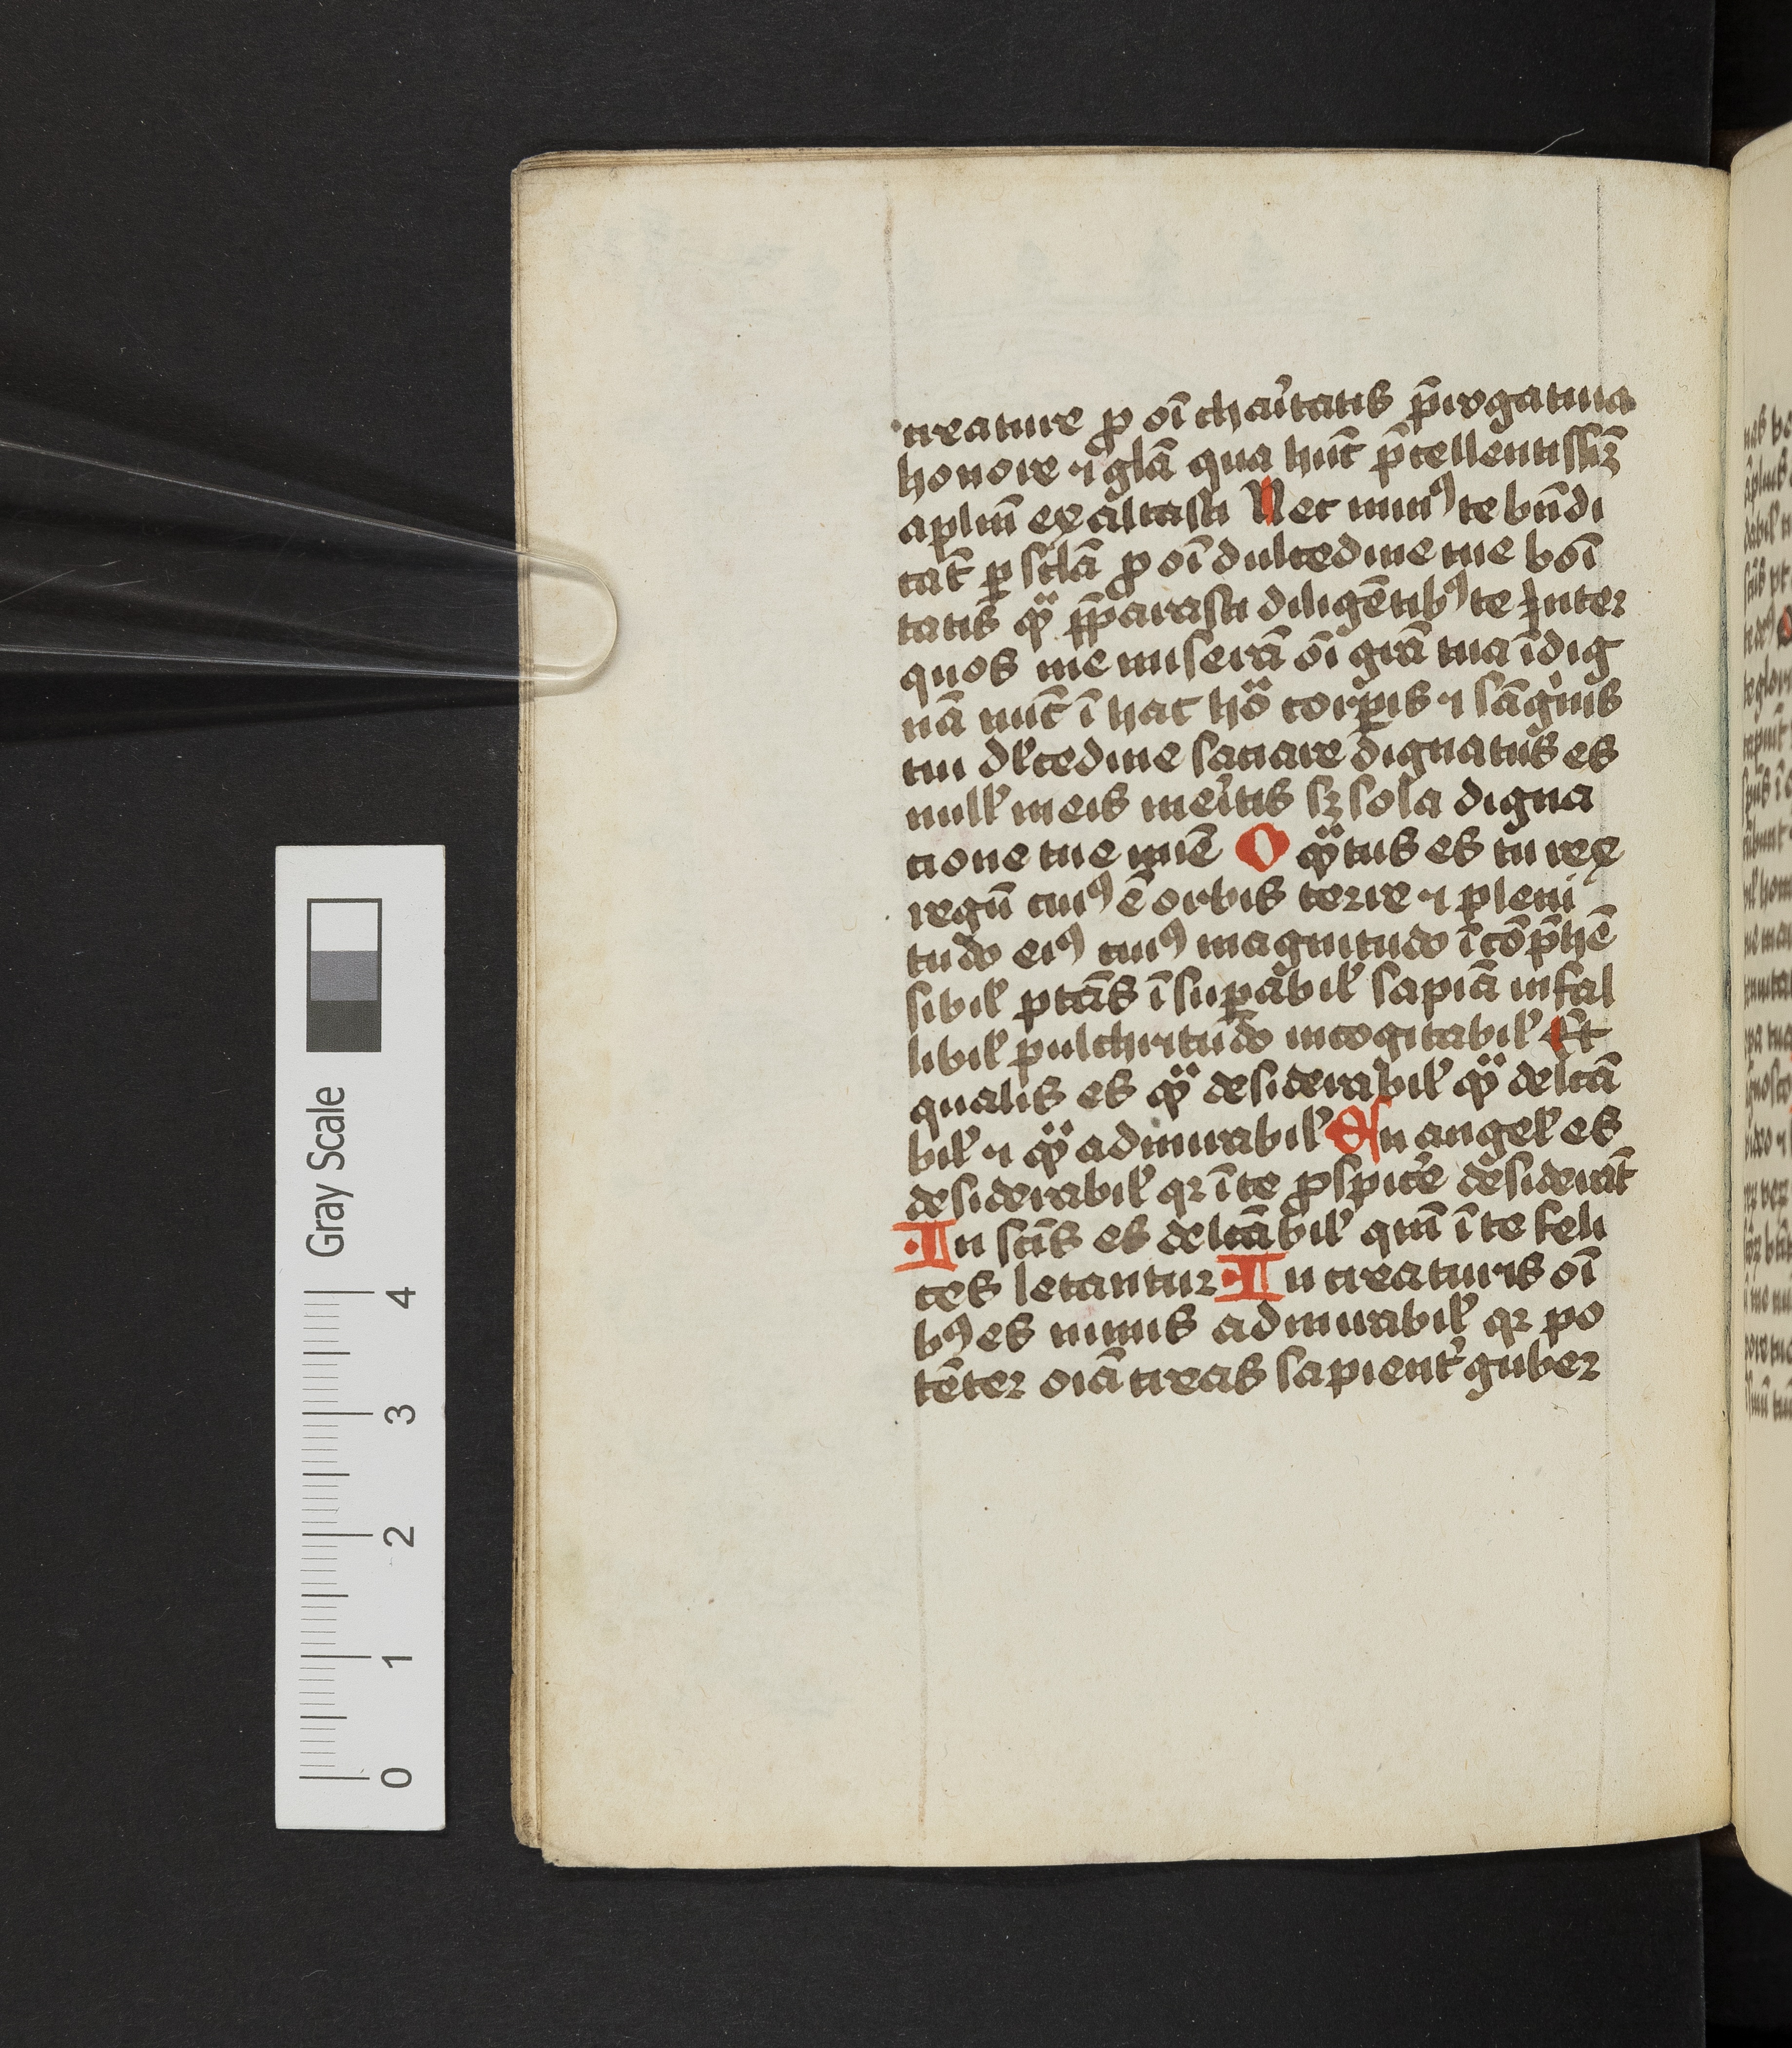 creature ꝓ oī chaͥtatis p̄rogatiua
honore ⁊ glā qua hūc p̄cellentissīꝫ
aplīm exaltasti Nec minꝰ te bn̄di
cāt ꝑ sclā ꝓ oī dulcedine tue boī
tatis qͣ p̄parasti diligētibꝰ te Inter
quos me miserā oī grā tua īdig
nā nūc ī hac hͦͣ corꝑis ⁊ sāgͥnis
tui dl̓cedine saciare dignatus es
null̓ meis meͥtis sꝫ sola digna
cione tue mīe O qͣtus es tu rex
regū cuiꝰ ē orbis terre ⁊ pleni
tudo eiꝰ cuiꝰ magnitudo īcōp̄hē
sibil̓ ptās īsuꝑabil̓ sapiā infal
libil̓ pulchritudo incogitabil̓ Et
qualis es qͣ desiderabil̓ qͣ delcā
bil̓ ⁊ qͣ admirabil̓ In angel̓ es
desiderabil̓ qꝛ ī te ꝓspicͤe desiderāt
In scīs es delcābil̓ qm̄ ī te feli
ces letantur In creaturis oī
bꝰ es nimis admirabil̓ qꝛ po
tēter oīa creas sapient̓ guber
Gray Scale
4
3
2
1
0